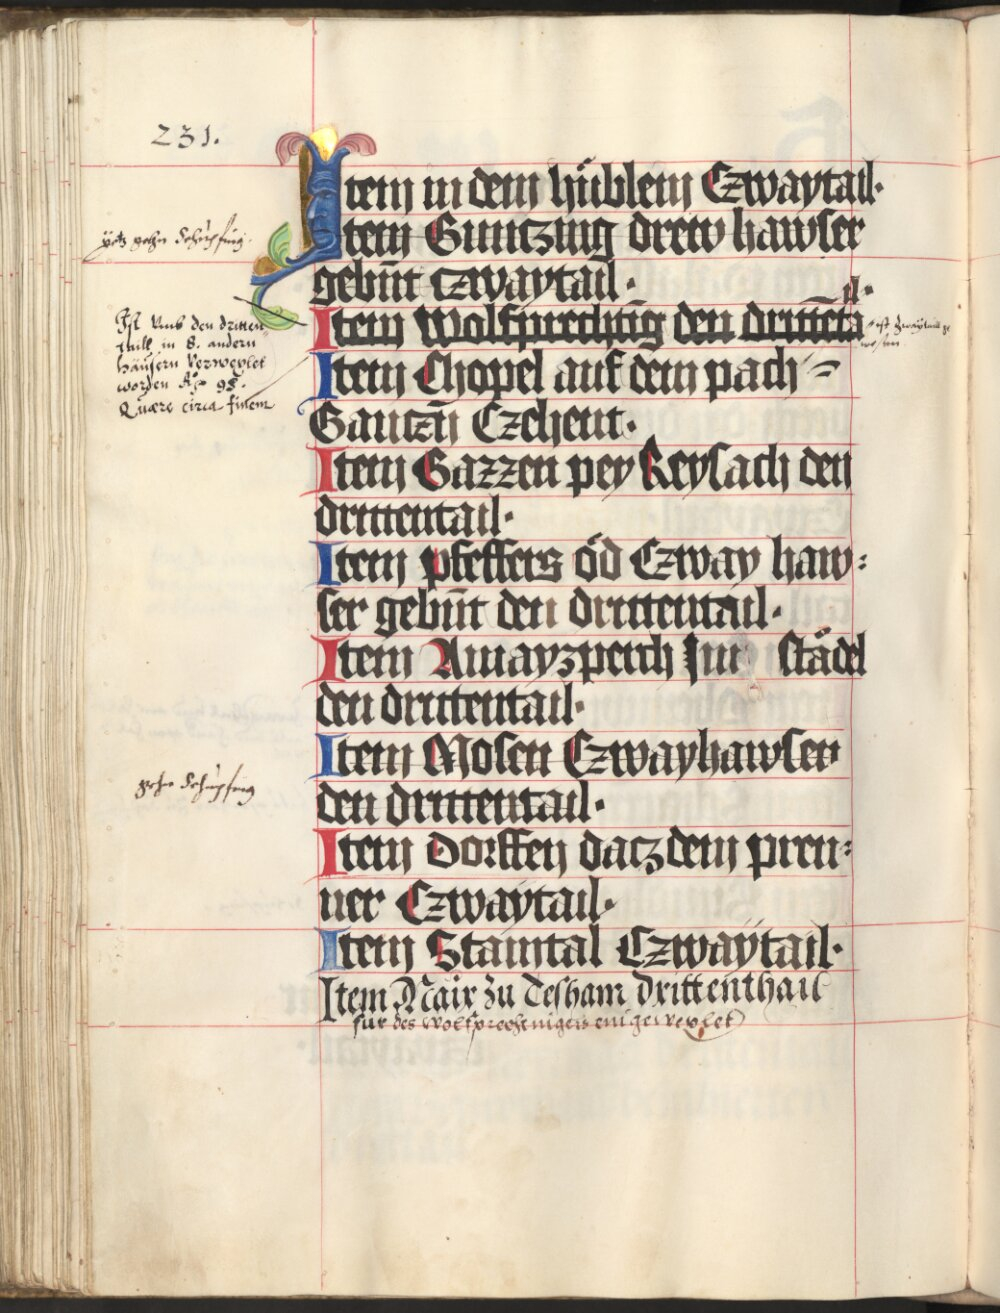 231.
Item in dem hüblein Czwaytail.
Item Guntzing drew hawser
gebūt czwaytail.
Item Wolfprechtīg den drittēta
il.
Item Chopel auf dem pach
Gantzn̄ Czehent.
Item Gazzen pey Reysach den
drittentail.
Item Pfeffers öd Czway haw:
ser gebūt den drittentail.
Item Amayzperch Im Städel
den drittentail.
Item Mosen Czwayhawser
den drittentail.
Item Dorffen datz dem pren:
ner Czwaytail.
Item Stamtal Czwaytail.
Item Mair zu Tesham drittenthail
für des Wolfprechinigers eingewexlet
gehn Schüpfing.
Ist Umb den dritten
thaill in 8. andern
häusern Verwexlet
worden Aō 98.
Quære circa finem
ist Zwaytail ge
wesen
gehn Schüpfing